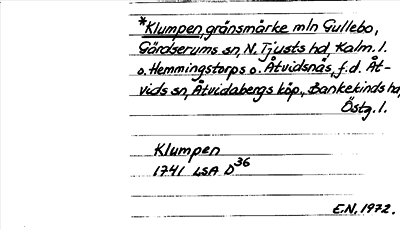 *Klumpen, gränsmärke mln Gullebo,
Gärdserums sn, N. Tjusts hd, Kalm. l.
o. Hemmingstorps o. Åtvidsnäs, f.d. Åt-
vids sn, Åtvidabergs köp., Bankekinds hd,
Östg. l.
Klumpen
1741 LSA D36
E.N. 1972.